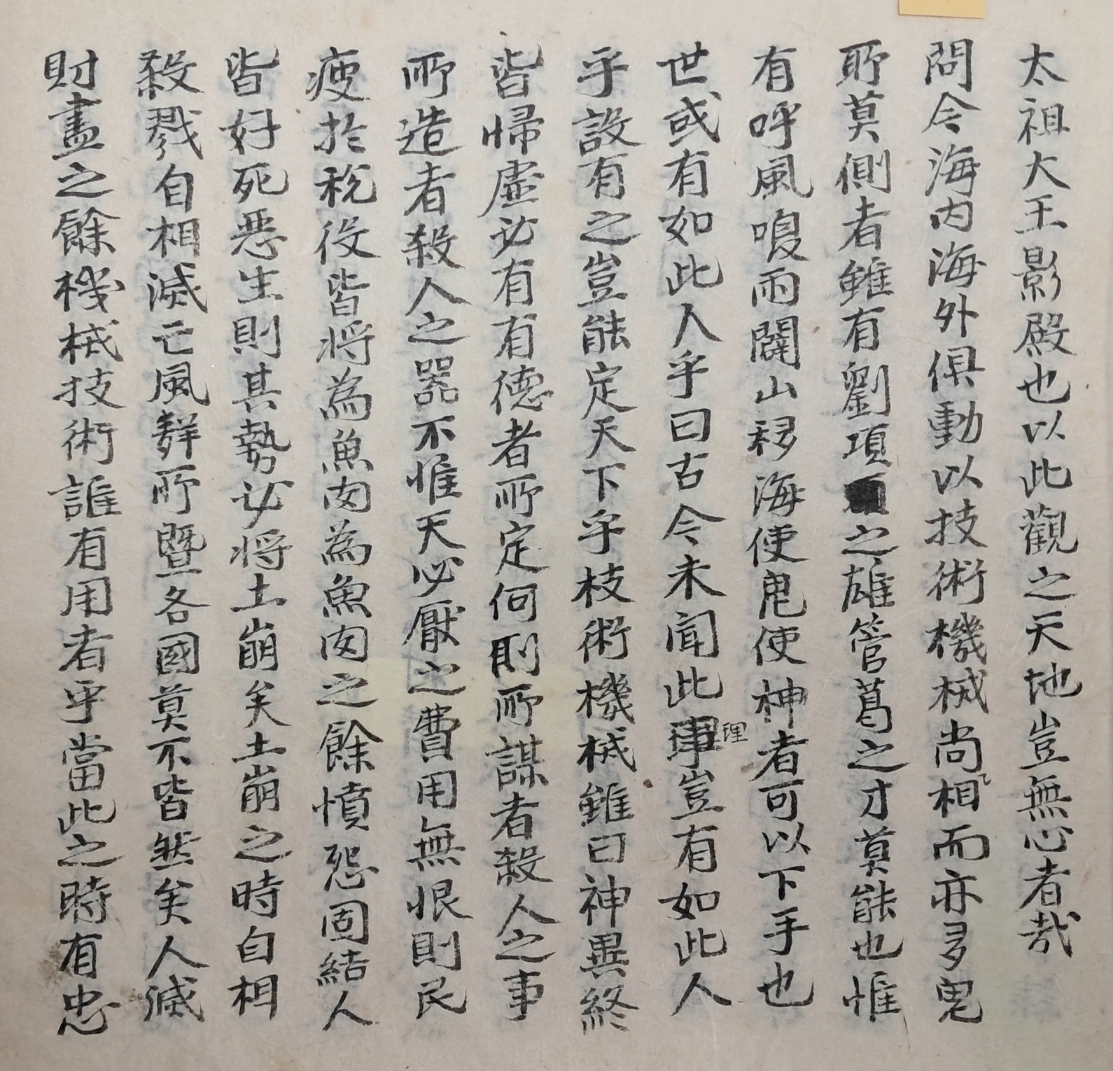 太祖大王影殿也以此觀之天地豈無心者哉
問今海內海外俱動以技術機械尚相而亦多鬼
所莫側者雖有劉項之雄管葛之才莫能也惟
有呼風嗅雨闢山移海使鬼使神者可以下手也
世或有如此人乎曰古今未聞此理豈有如此人
乎設有之豈能定天下乎枝術機械雖曰神異終
皆歸虛必有有德者所定何則所謀者殺人之事
所造者殺人之器不惟天必厭之費用無恨則民
瘦於稅役皆將為魚肉為魚肉之餘憤怨固結人
皆好死惡生則其勢必將土崩矣土崩之時自相
殺戮自相滅亡風舞所暨各國莫不皆然矣人滅
財盡之餘機械技術誰有用者乎當此之時有忠